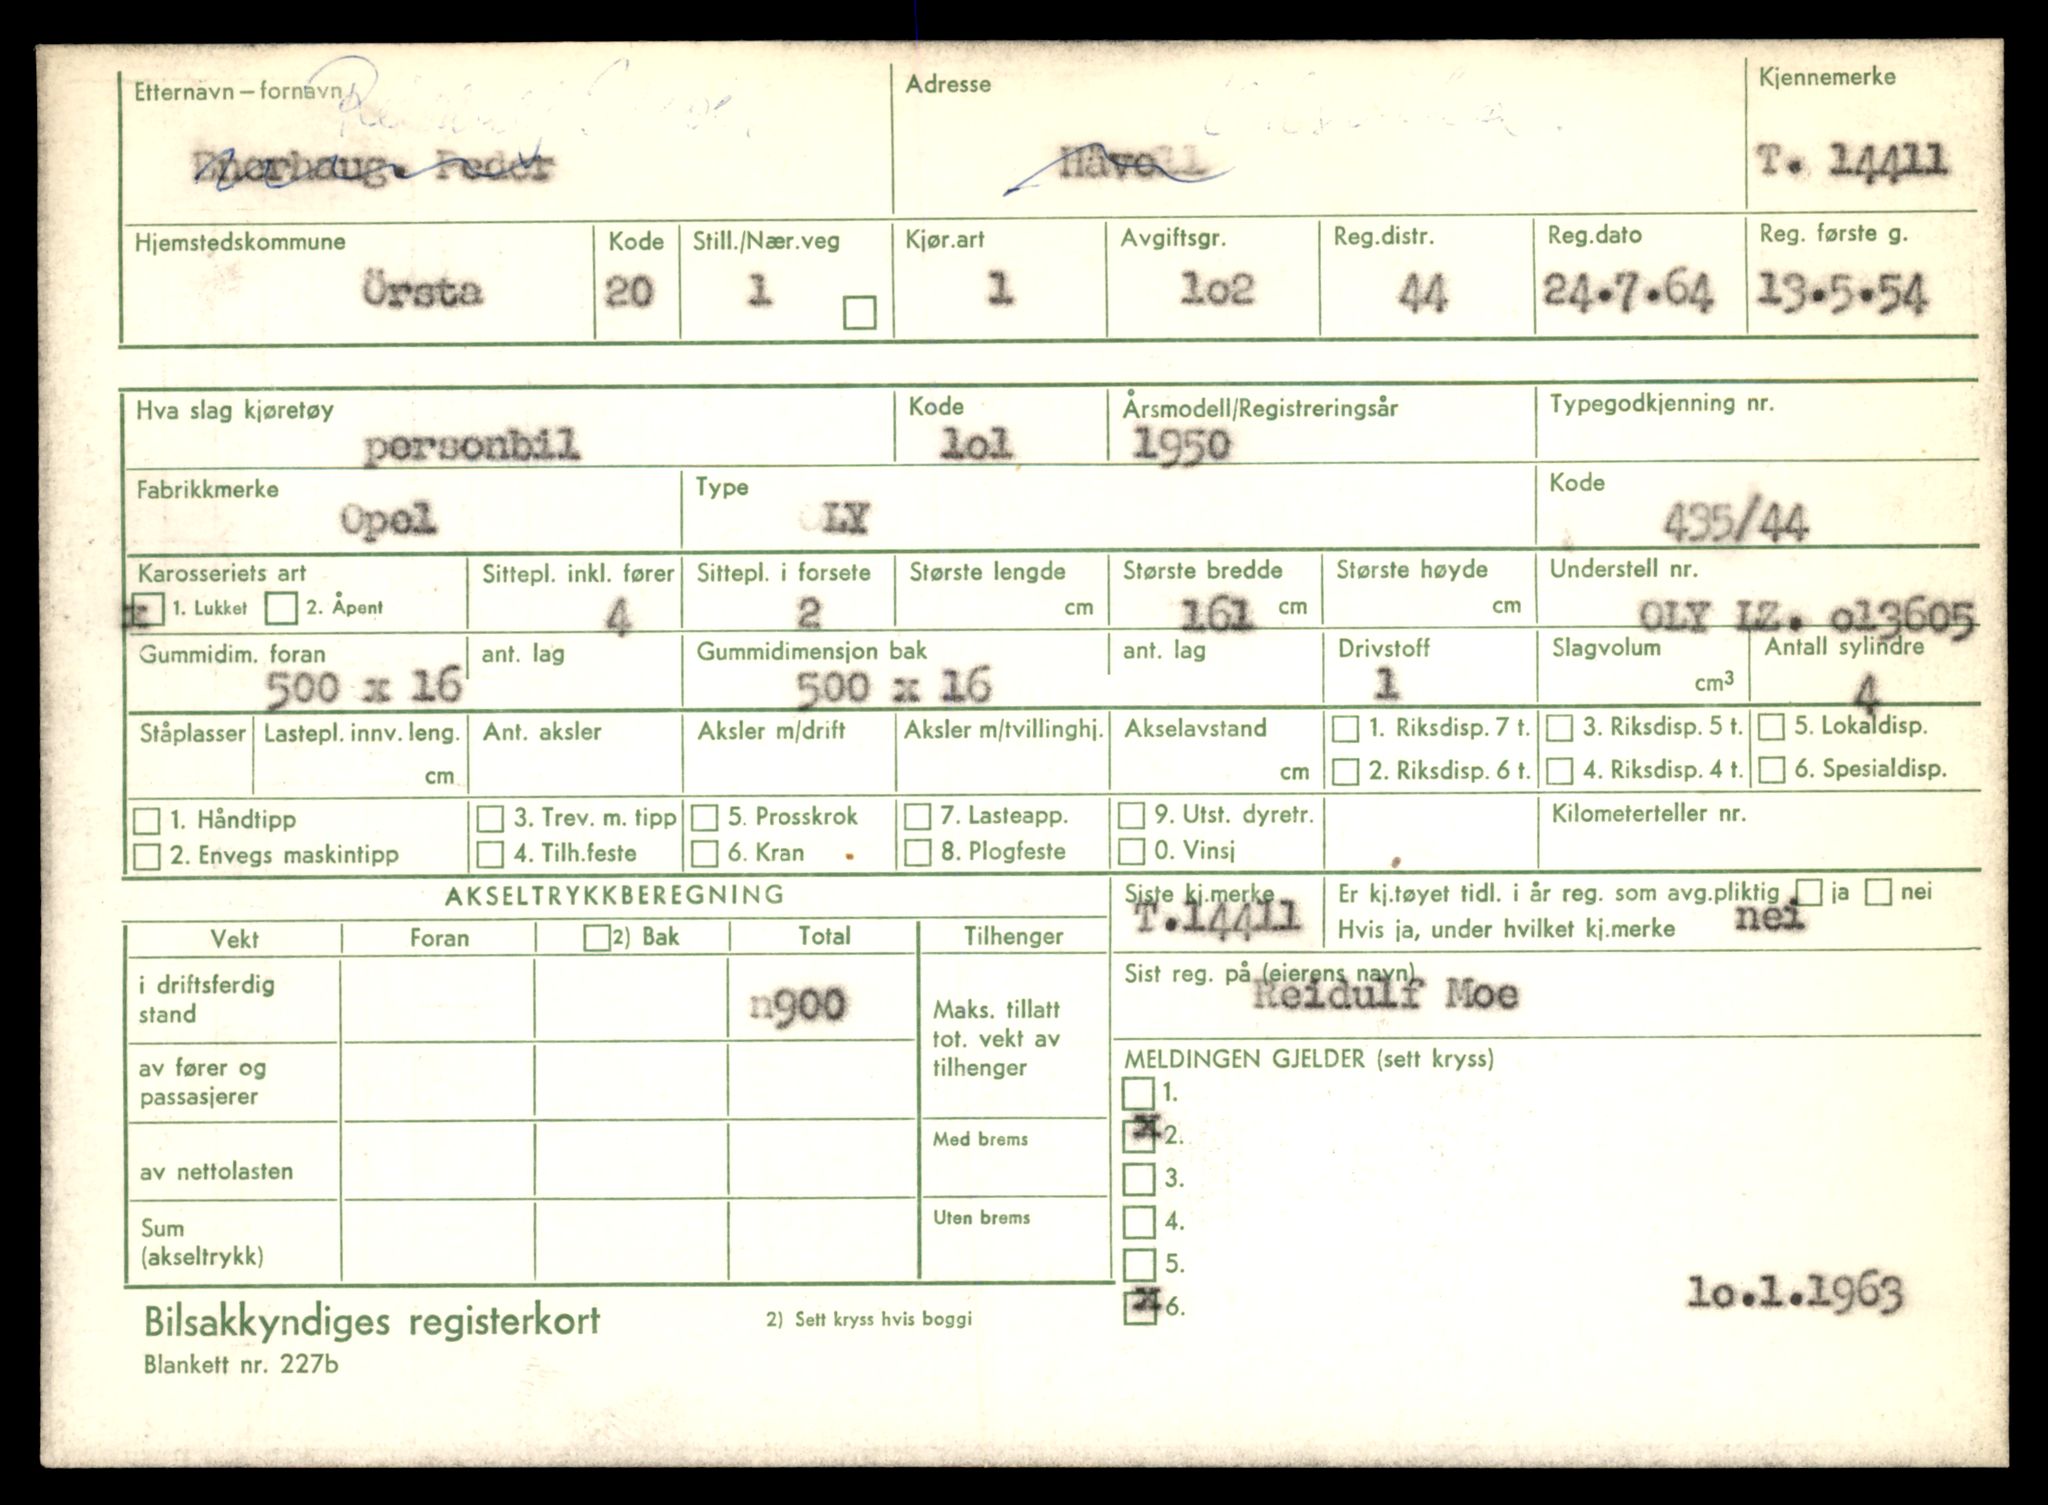 Etternavn – fornavn Adresse Kjennemerke
Peder T. 14411
Hjemstedskommune Kode Still./Nær.veg Kjør.art Avgiftsgr. Reg.distr. Reg.dato Reg. første g.
Örsta 20 1 1 1o2 44 24.7.64 13.5.54
Hva slag kjøretøy Kode Årsmodell/Registreringsår Typegodkjenning nr.
personbil 1o1 1950
Fabrikkmerke Type Kode
Opel OLY 435/44
Karosseriets art Sittepl. inkl. fører Sittepl. i forsete Største lengde Største bredde Største høyde Understell nr.
x 1. Lukket 2. Åpent 4 2 cm 161 cm cm OLY LZ. o13605
Gummidim. foran ant. lag Gummidimensjon bak ant. lag Drivstoff Slagvolum Antall sylindre
500 x 16 500 x 16 1 cm3 4
Ståplasser Lastepl. innv. leng. Ant. aksler Aksler m/drift Aksler m/tvillinghj. Akselavstand 1. Riksdisp. 7 t. 3. Riksdisp. 5 t. 5. Lokaldisp.
cm cm 2. Riksdisp. 6 t. 4. Riksdisp. 4 t. 6. Spesialdisp.
1. Håndtipp 3. Trev. m. tipp 5. Prosskrok 7. Lasteapp. 9. Utst. dyretr. Kilometerteller nr.
2. Envegs maskintipp 4. Tilh.feste 6. Kran 8. Plogfeste 0. Vinsj
AKSELTRYKKBEREGNING Siste kj.merke Er kj.tøyet tidl. i år reg. som avg.pliktig ja nei
T.14411 Hvis ja, under hvilket kj.merke nei
Vekt Foran 2) Bak Total Tilhenger
Sist reg. på (eierens navn)
Reidulf Moe
i driftsferdig
stand n900
Maks. tillatt
tot. vekt av
tilhenger
av fører og
passasjerer
MELDINGEN GJELDER (sett kryss)
1.
x 2.
Med brems
av nettolasten
3.
Uten brems
4.
Sum
(akseltrykk)
5.
x 6. 1o.1.1963
Bilsakkyndiges registerkort 2) Sett kryss hvis boggi
Blankett nr. 227b